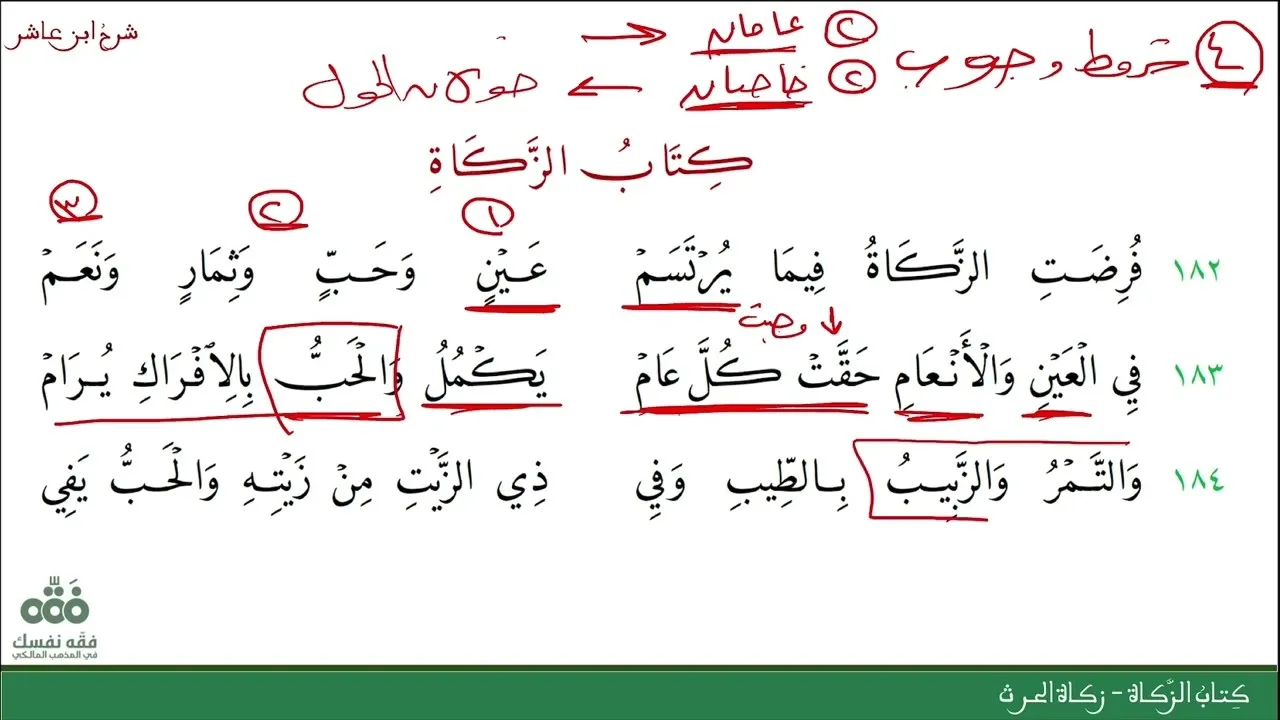 شرح ابن عاشر
٤ شروط وجوب
٢ عامان
٢ خاصان ← حولان الحول
كِتَابُ الزَّكَاةِ
١ ٢ ٣
١٨٢ فُرِضَتِ الزَّكَاةُ فِيمَا يُرْتَسَمْ عَيْنٍ وَحَبٍّ وَثِمَارٍ وَنَعَمْ
وجبت ↓
١٨٣ فِي الْعَيْنِ وَالْأَنْعَامِ حَقَّتْ كُلَّ عَامْ يَكْمُلُ وَالْحَبُّ بِالِافْرَاكِ يُرَامْ
١٨٤ وَالتَّمْرُ وَالزَّبِيبُ بِالطِّيبِ وَفِي ذِي الزَّيْتِ مِنْ زَيْتِهِ وَالْحَبُّ يَفِي
فقه نفسك
في المذهب المالكي
كِتابُ الزَّكاة - زكاة الحرث